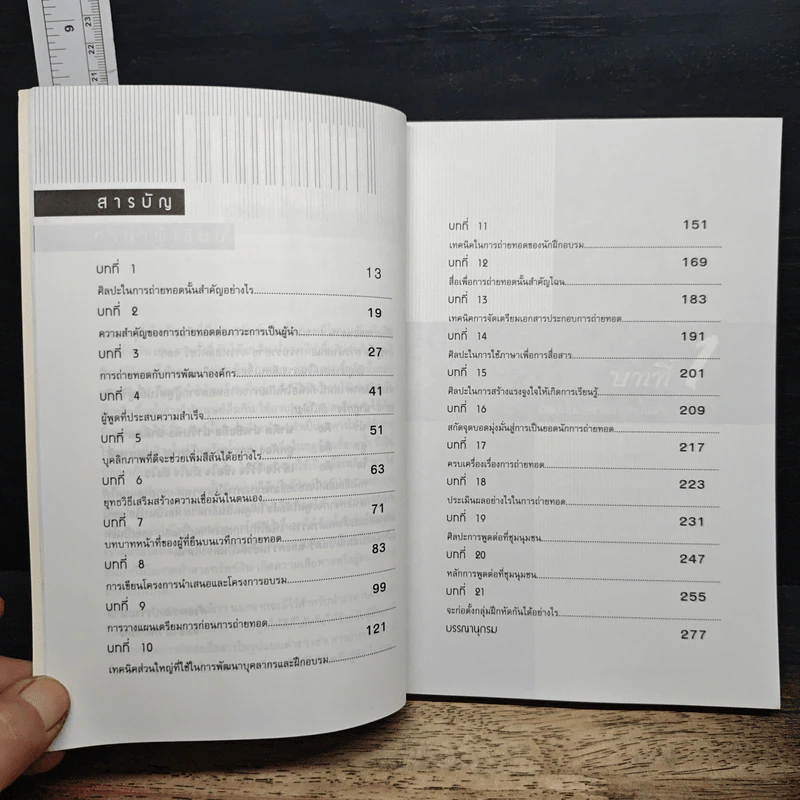 สารบัญ
บทที่ 1 13
ศิลปะในการถ่ายทอดนั้นสำคัญอย่างไร
บทที่ 2 19
ความสำคัญของการถ่ายทอดต่อภาวะการเป็นผู้นำ
บทที่ 3 27
การถ่ายทอดกับการพัฒนาองค์กร
บทที่ 4 41
ผู้พูดที่ประสบความสำเร็จ
บทที่ 5 51
บุคลิกภาพที่ดีจะช่วยเพิ่มสีสันได้อย่างไร
บทที่ 6 63
ยุทธวิธีเสริมสร้างความเชื่อมั่นในตนเอง
บทที่ 7 71
บทบาทหน้าที่ของผู้ที่ยืนบนเวทีการถ่ายทอด
บทที่ 8 83
การเขียนโครงการนำเสนอและโครงการอบรม
บทที่ 9 99
การวางแผนเตรียมการก่อนการถ่ายทอด
บทที่ 10 121
เทคนิคส่วนใหญ่ที่ใช้ในการพัฒนาบุคลากรและฝึกอบรม
บทที่ 11 151
เทคนิคในการถ่ายทอดของนักฝึกอบรม
บทที่ 12 169
สื่อเพื่อการถ่ายทอดนั้นสำคัญไฉน
บทที่ 13 183
เทคนิคการจัดเตรียมเอกสารประกอบการถ่ายทอด
บทที่ 14 191
ศิลปะในการใช้ภาษาเพื่อการสื่อสาร
บทที่ 15 201
ศิลปะในการสร้างแรงจูงใจให้เกิดการเรียนรู้
บทที่ 16 209
สกัดจุดบอดมุ่งมั่นสู่การเป็นยอดนักการถ่ายทอด
บทที่ 17 217
ครบเครื่องเรื่องการถ่ายทอด
บทที่ 18 223
ประเมินผลอย่างไรในการถ่ายทอด
บทที่ 19 231
ศิลปะการพูดต่อที่ชุมนุมชน
บทที่ 20 247
หลักการพูดต่อที่ชุมนุมชน
บทที่ 21 255
จะก่อตั้งกลุ่มฝึกหัดกันได้อย่างไร
บรรณานุกรม 277
บทที่ 1
9
23
22
21